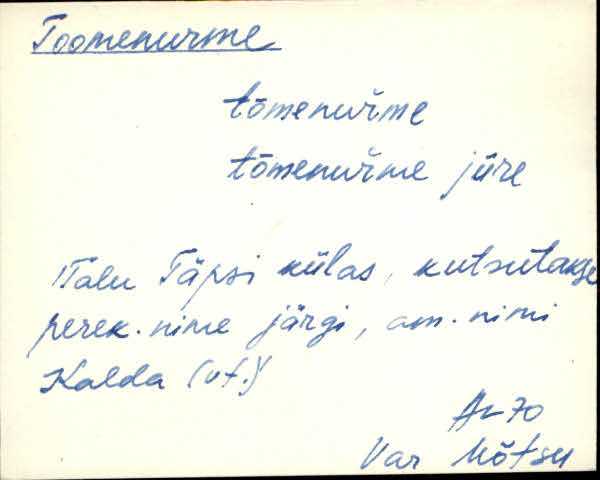 Toomenurme
tōmenuŕme
tōmenuŕme jüre
Talu Täpsi külas, kutsutakse
perek. nime järgi, am. nimi
Kalda (vt.)
Ar 70
Var Mõtsu